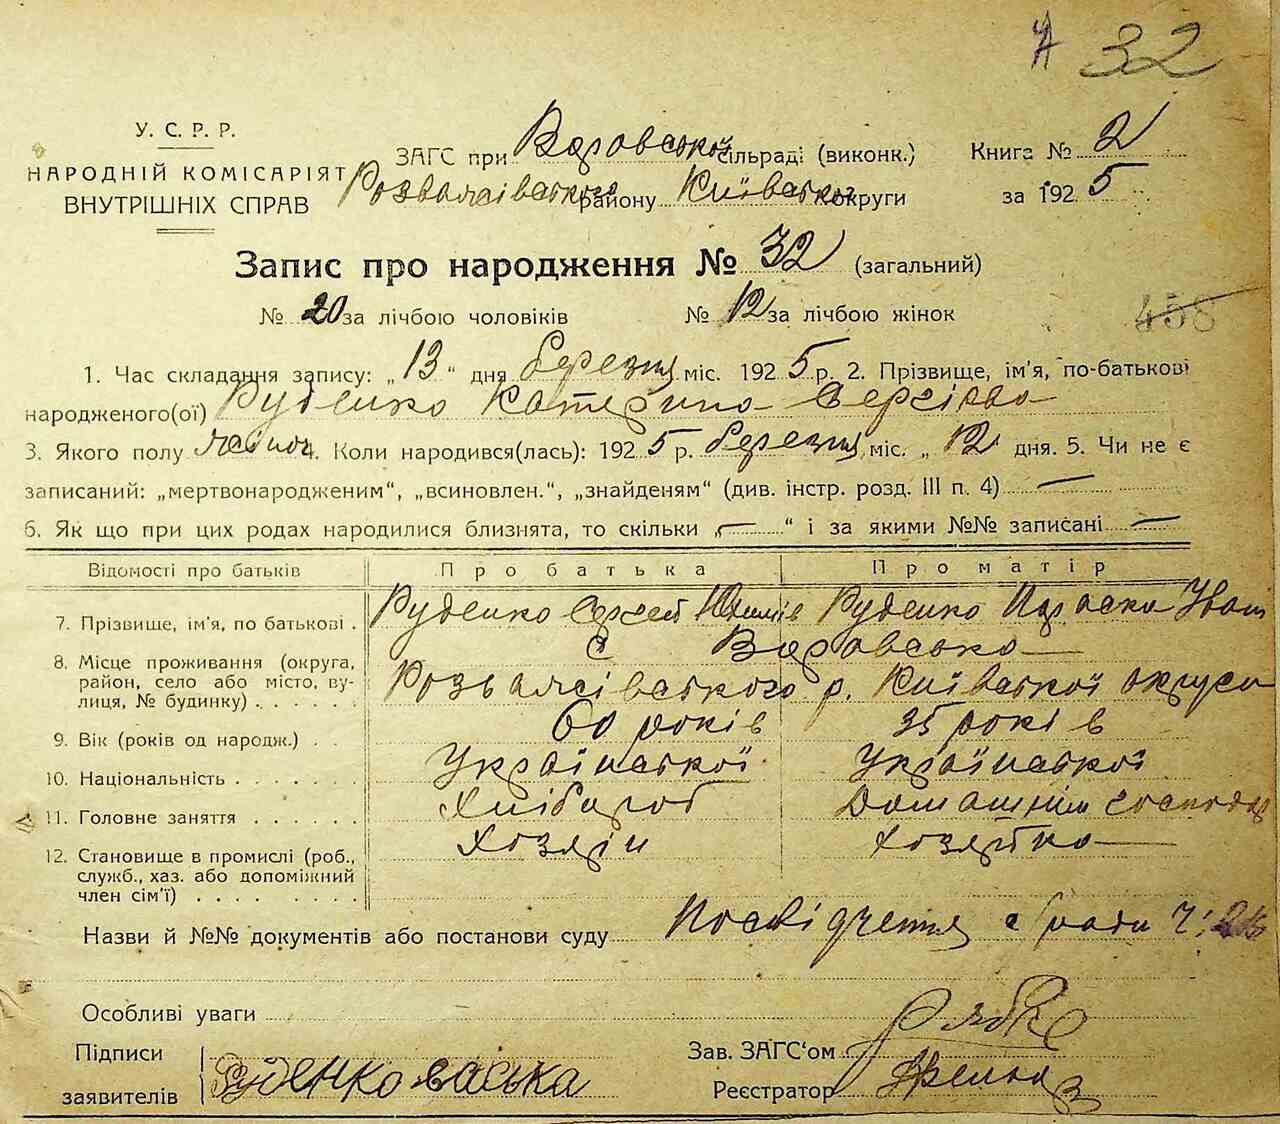 32
У. С. Р. Р.
НАРОДНІЙ КОМІСАРІЯТ
ВНУТРІШНІХ СПРАВ
ЗАГС при Варовської сільраді (виконк.) Книга № 2
Розважівського району Київської округи за 1925
Запис про народження № 32 (загальний)
№ 20 за лічбою чоловіків № 12 за лічбою жінок
458
1. Час складання запису: „13“ дня березня міс. 1925 р. 2. Прізвище, ім'я, по-батькові
народженого(ої) Руденко Катерина Сергієва
3. Якого полу 4. Коли народився(лась): 1925 р. березня міс. „12 дня. 5. Чи не є
записаний: „мертвонародженим“, „всиновлен.“, „знайденям“ (див. інстр. розд. III п. 4) —
6. Як що при цих родах народилися близнята, то скільки „—“ і за якими №№ записані —
Відомості про батьків Про батька Про матір
7. Прізвище, ім'я, по батькові . Руденко Сергей Руденко Параска Іван
8. Місце проживання (округа, район, село або місто, вулиця, № будинку) . . . . . . с Варовсько
Розважівського р. Київської округи
9. Вік (років од народж.) . . 60 років 35 років
10. Національність . . . . . . . Української Української
11. Головне заняття . . . . . . Хлібороб Домашнім господар
12. Становище в промислі (роб., служб., хаз. або допоміжний член сім'ї) . . . . . . . Хозяїн хозяйка
Назви й №№ документів або постанови суду Посвідчення с/ради ч:
Особливі уваги
Підписи
заявителів
Руденко васька
Зав. ЗАГС'ом Рябко
Реєстратор